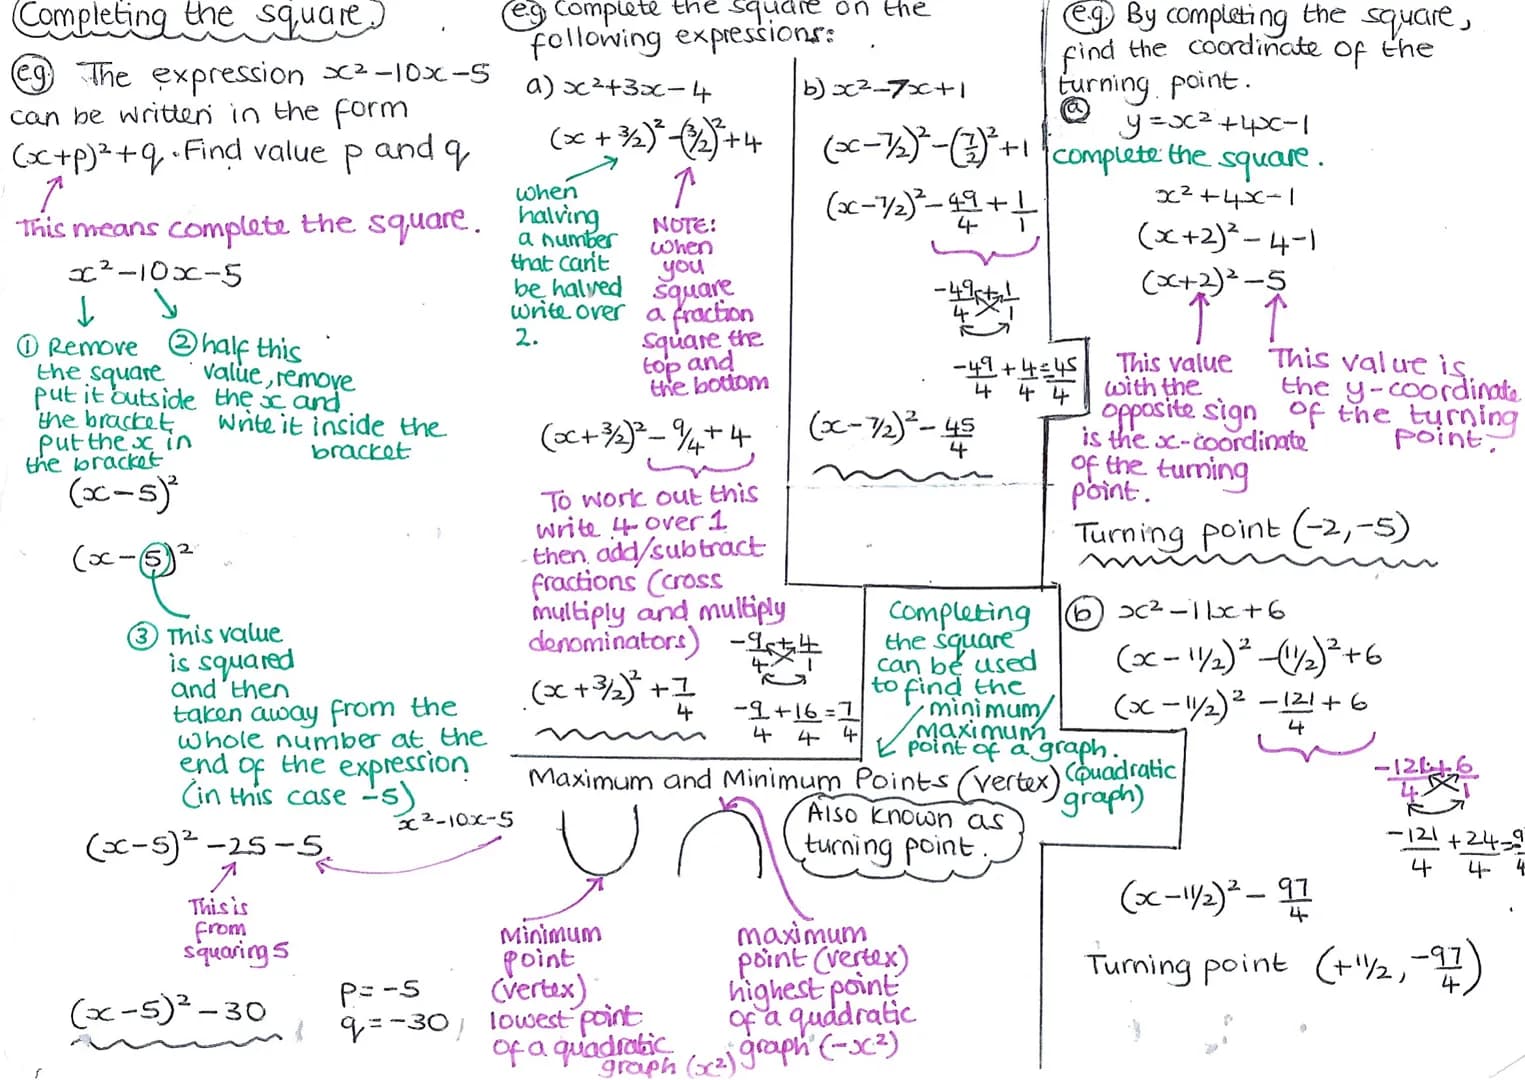 Completing the square.
eg The expression x² -10x -5
can be written in the form
(x+p)² + q . Find value p and q
This means complete the square.
x² -10x -5
① Remove
the square
put it outside
the bracket,
put the x in
the bracket
② half this
value, remove
the x and
write it inside the
bracket
(x-5)²
(x-5)²
③ This value
is squared
and then
taken away from the
whole number at the
end of the expression
(in this case -5)
x²-10x-5
(x-5)² -25 -5
This is
from
squaring 5
(x-5)² -30
p= -5
q = -30
e.g Complete the square on the
following expressions:
a) x²+3x-4
(x + 3/2)² -(3/2)² +4
when
halving
a number
that can't
be halved
write over
2.
NOTE:
when
you
square
a fraction
square the
top and
the bottom
(x+3/2)² - 9/4 + 4
To work out this
write 4 over 1
then add/subtract
fractions (cross
multiply and multiply
denominators)
-9/4 + 4/1
(x+3/2)² + 7/4
-9/4 + 16/4 = 7/4
b) x²-7x+1
(x-7/2)² -(7/2)² +1
(x-7/2)² - 49/4 + 1/1
-49/4 + 1/1
-49/4 + 4/4 = 45/4
(x-7/2)² - 45/4
Completing
the square
can be used
to find the
minimum/
maximum
point of a graph.
(quadratic
graph)
Maximum and Minimum Points (vertex)
Also known as
turning point.
Minimum
point
(vertex)
lowest point
of a quadratic
graph (x²)
maximum
point (vertex)
highest point
of a quadratic
graph (-x²)
e.g. By completing the square,
find the coordinate of the
turning point.
a y = x² +4x-1
complete the square.
x² +4x-1
(x+2)² - 4 -1
(x+2)² -5
This value
with the
opposite sign
is the x-coordinate
of the turning
point.
This value is
the y-coordinate
of the turning
point.
Turning point (-2,-5)
b x² -11x+6
(x - 11/2)² -(11/2)² +6
(x - 11/2)² - 121/4 + 6
-121/4 + 6/1
-121/4 + 24/4 = 9
(x-11/2)² - 97/4
Turning point (+11/2, -97/4)